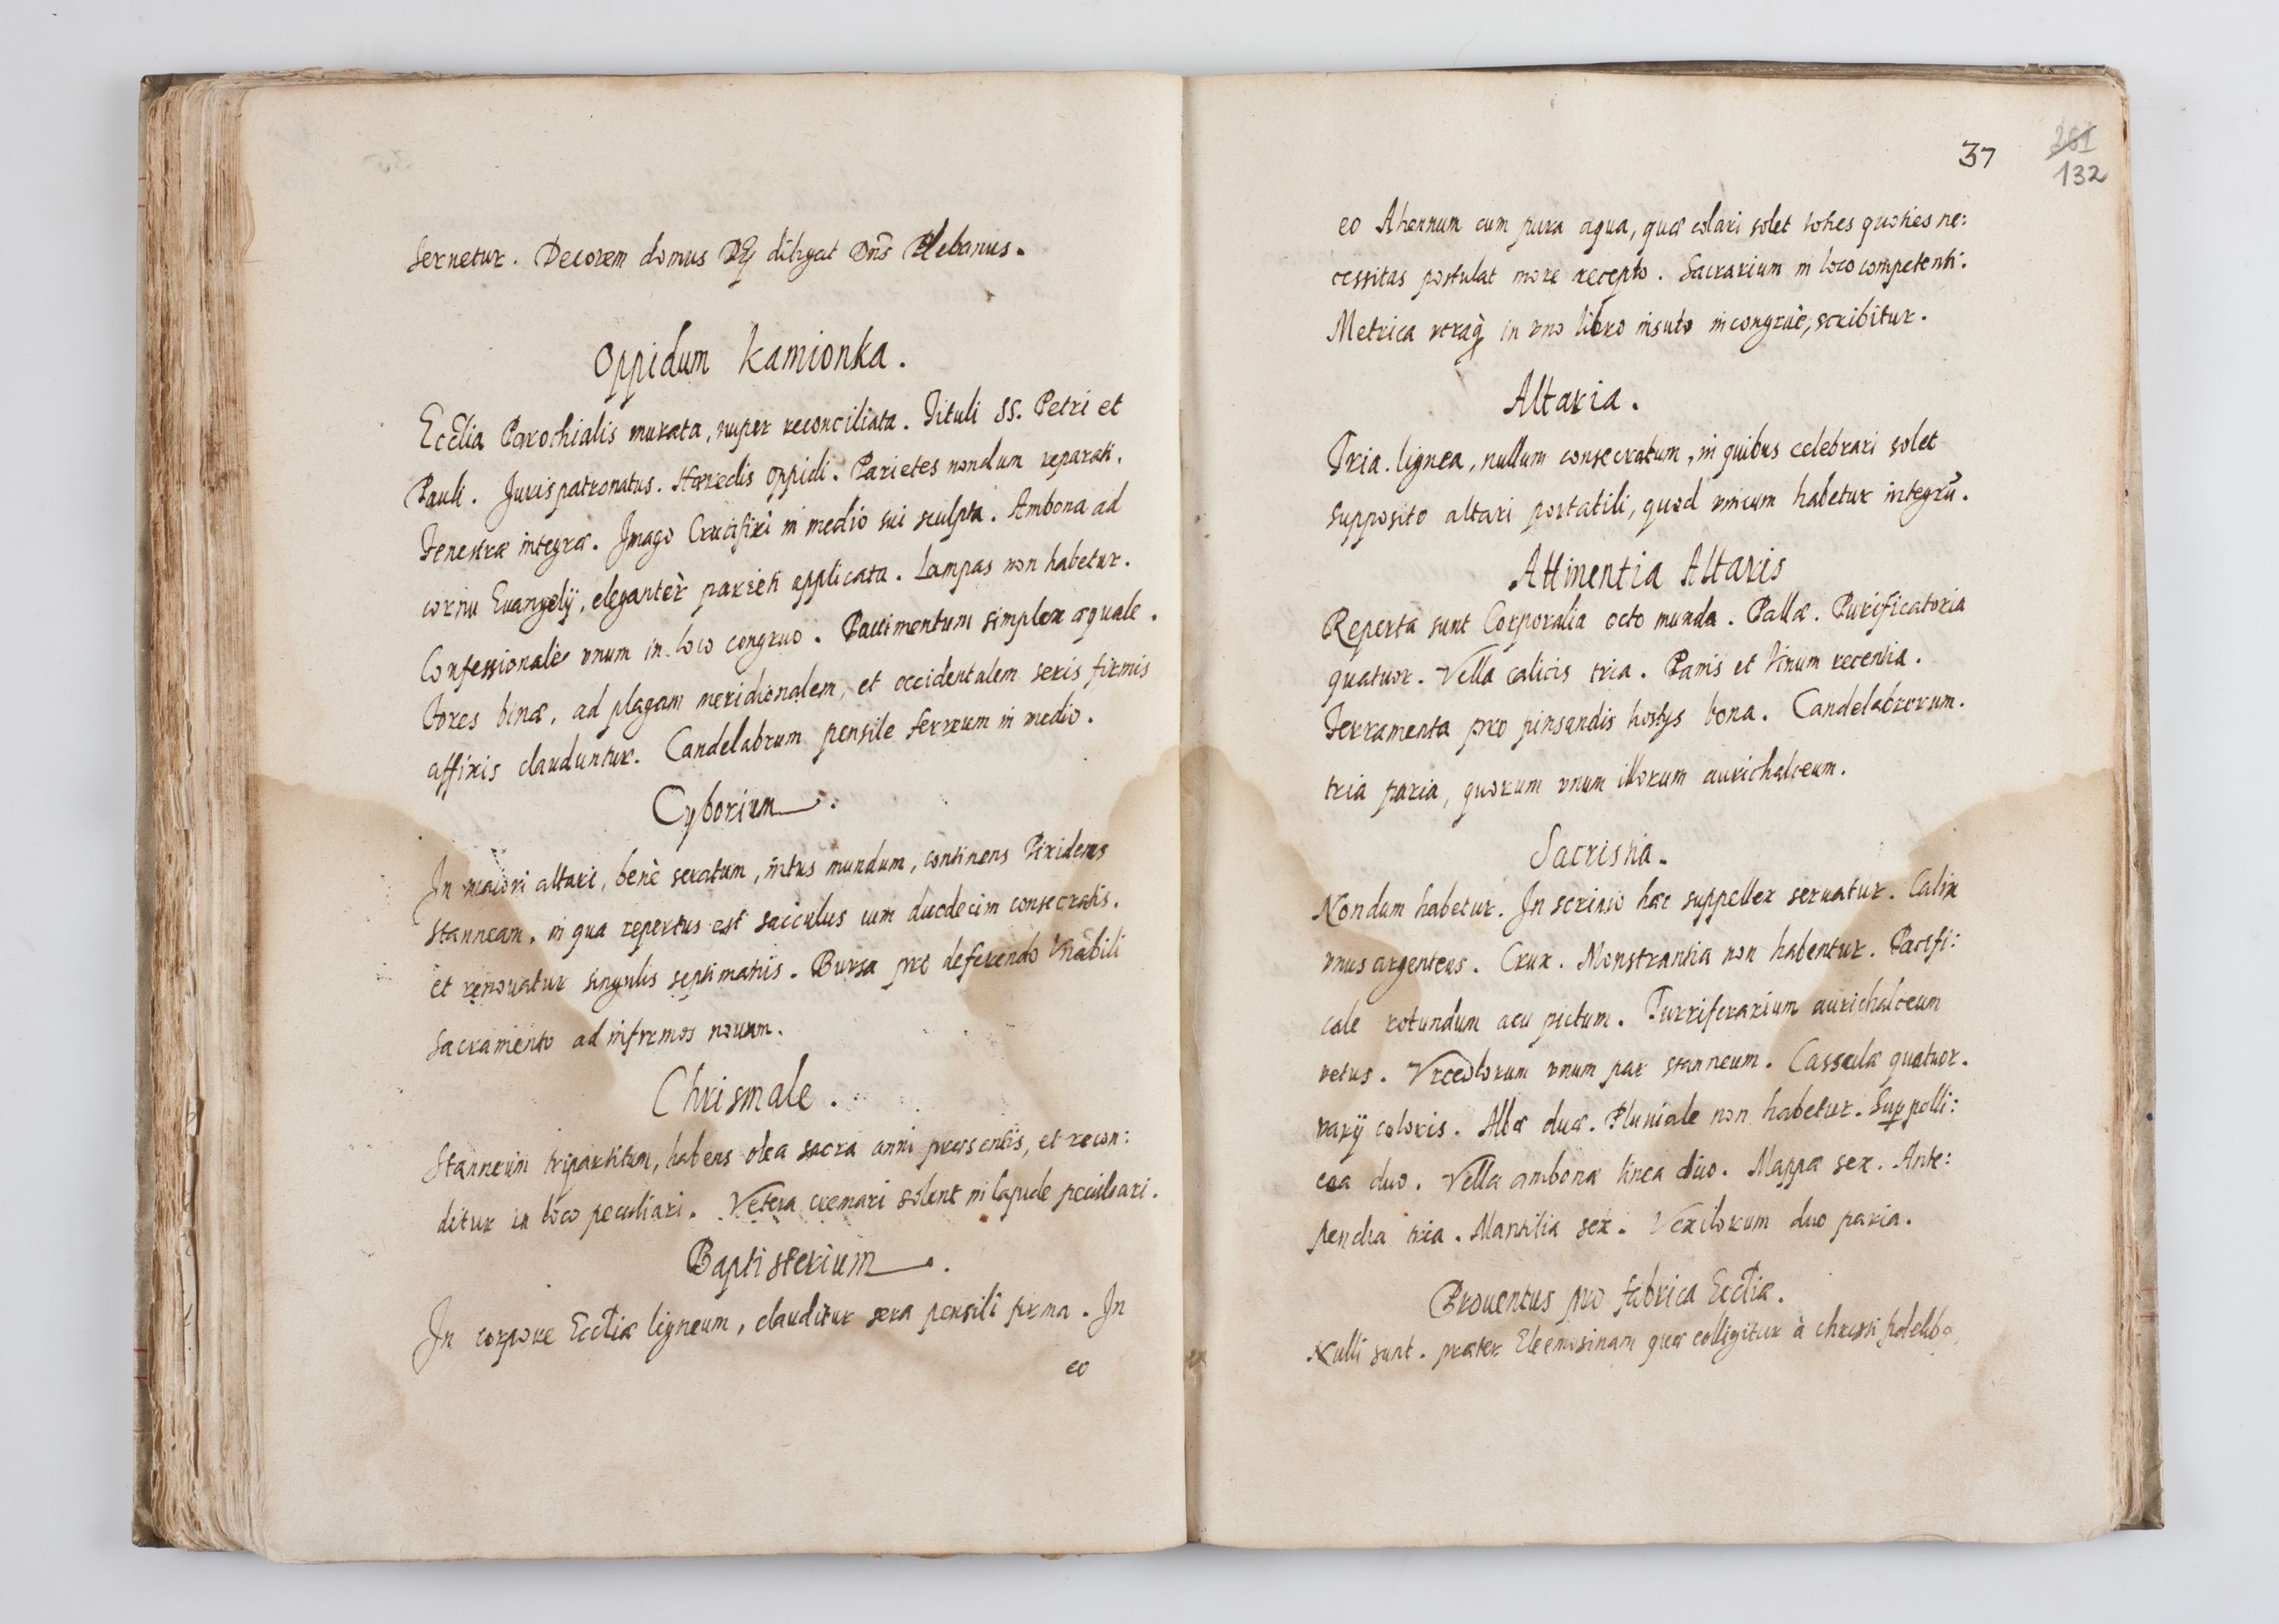 seruetur. Decorem domus Dej diligat Dns Plebanus.
Oppidum Kamionka.
Ecclia Parochialis murata, nuper reconciliata. Tituli SS. Petri et
Pauli. Jurispatronatus. Hæredis Oppidi. Parietes nondum reparati.
Fenestræ integræ. Jmago Crucifixi in medio sui sculpta. Ambona ad
cornu Euangelij, eleganter parieti applicata. Lampas non habetur.
Confessionale vnum in loco congruo. Pauimentum simplex æquale.
Fores binæ, ad plagam meridionalem, et occidentalem seris firmis
affixis clauduntur. Candelabrum pensile ferreum in medio.
Cyborium.
Jn maiori altari, benè seratum, intus mundum, continens Pixidem
stanneam, in qua repertus est sacculus cum duodecim consecratis.
et renouatur singulis septimanis. Bursa pro deferendo Vnābili
Sacramento ad infirmos nouam.
Chrismale.
Stanneum tripartitum, habens olea sacra anni præsentis, et recon:
ditur in loco peculiari. Vetera cremari solent in lapide peculiari.
Baptisterium.
Jn corpore Eccliæ ligneum, clauditur sera pensili firma. Jn
eo
37
261
132
eo Ahennum cum pura aqua, quæ colari solet toties quoties ne:
cessitas postulat more recepto. Sacrarium in loco competenti.
Metrica vtraq in vno libro insuto incongruè, scribitur.
Altaria.
Tria. lignea, nullum consecratum, in quibus celebrari solet
supposito altari portatili, quod vnicum habetur integrū.
Attinentia Altaris
Reperta sunt Corporalia octo munda. Pallæ. Purificatoria
quatuor. Vella calicis tria. Panis et Vinum recentia.
Ferramenta pro pinsandis hostijs bona. Candelabrorum.
tria paria, quorum vnum illorum aurichalceum.
Sacristia.
Nondum habetur. Jn scrinio hæc suppellex seruatur. Calix
vnus argenteus. Crux. Monstrantia non habentur. Pacifi:
cale rotundum acu pictum. Turriferarium aurichalceum
vetus. Vrceolorum vnum par stanneum. Cassulæ quatuor.
varij coloris. Albæ duæ. Pluuiale non habetur. Superpelli:
cea duo. Vella ambonæ linea duo. Mappæ sex. Ante:
pendia tria. Mantilia sex. Vexilorum duo paria.
Prouentus pro fabrica Eccliæ.
Nulli sunt. præter Eleemosinam quæ colligitur à christi fidelib